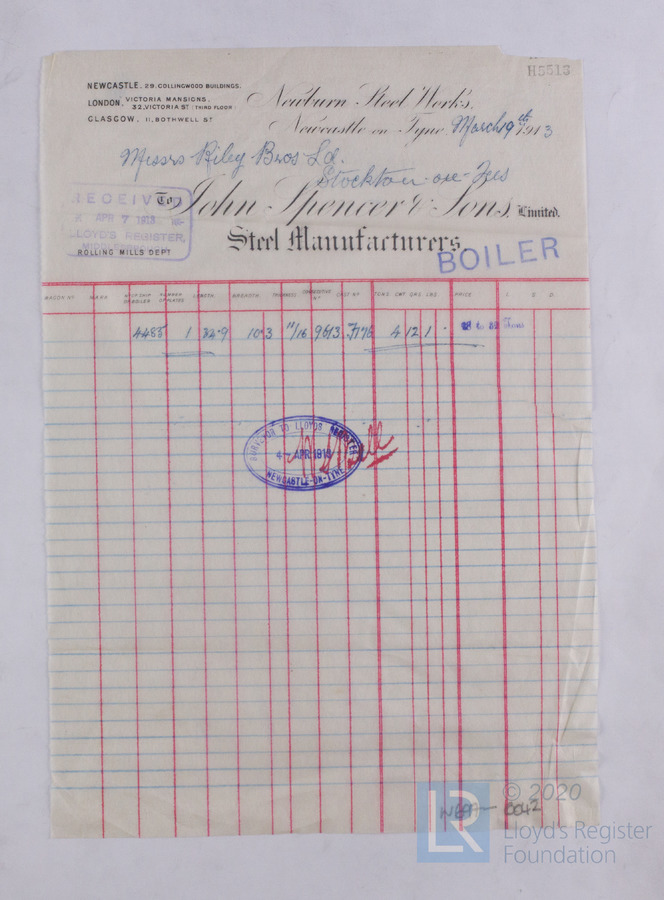 H5513
NEWCASTLE, 29, COLLINGWOOD BUILDINGS.
LONDON, VICTORIA MANSIONS,
32, VICTORIA ST (THIRD FLOOR)
GLASGOW, 11, BOTHWELL ST
Newburn Steel Works,
Newcastle on Tyne March 19th 1913
Messrs Riley Bros Ld.
Stockton-on-Tees
RECEIVED
APR 7 1913
LLOYD'S REGISTER,
To John Spencer & Sons, Limited.
Steel Manufacturers,
ROLLING MILLS DEPT
BOILER
WAGON NO MARK NO OF SHIP OR BOILER NUMBER OF PLATES LENGTH BREADTH THICKNESS CONSECUTIVE NO CAST NO TONS CWT QRS LBS PRICE £ S D
4485 1 32.9 10.3 11/16 9613 4 12 1 . 28 to 32 Tons
SURVEYOR TO LLOYDS REGISTER
4 - APR 1913
NEWCASTLE-ON-TYNE
0042
LR
© 2020
Lloyd's Register
Foundation